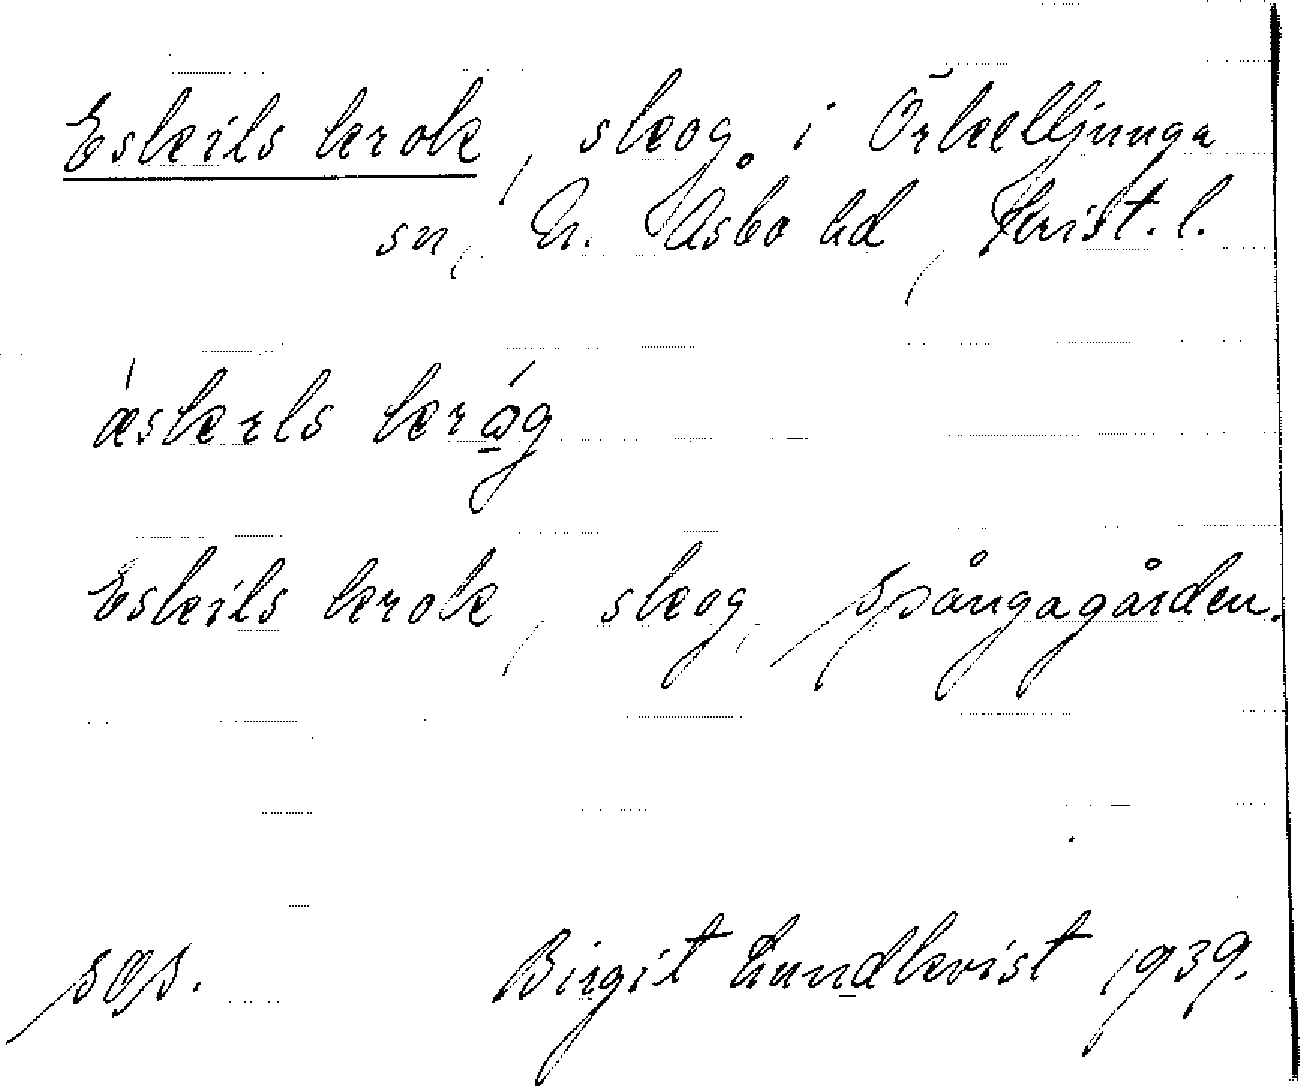 Eskils krok, skog i Örkelljunga
sn, N. Åsbo hd, Krist. l.
ǽskɩls krǿg
Eskils krok, skog, Spångagården.
Birgit Lundkvist 1939.